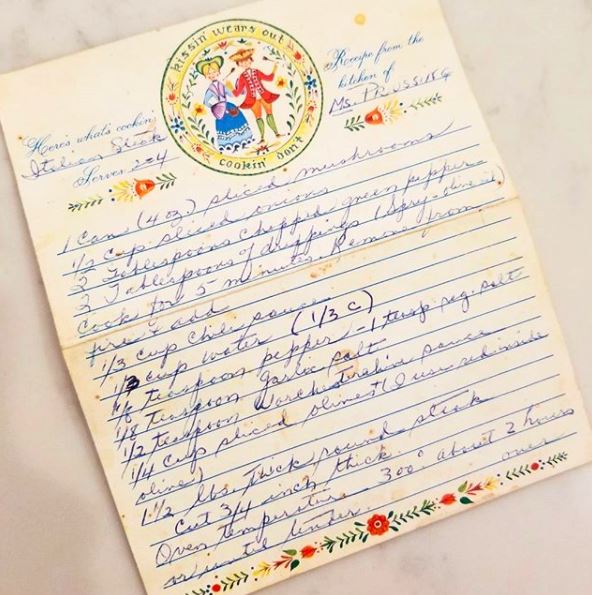 kissin' wears out
cookin' don't
Here's what's cookin'
Italian Steak
Serves 2 or 4
Recipe from the
kitchen of
Ms.
1 can (4 oz) sliced mushrooms
1/2 cup sliced onions
2 Tablespoons chopped green pepper
2 Tablespoons of drippings (Spry - olive oil)
cook for 5 minutes. Remove from
fire & add
1/3 cup chile sauce
1/3 cup water (1/3 c)
teaspoon pepper - 1 teasp reg. salt
1/8 teaspoon garlic salt
1/2 teaspoon sauce
1/4 cup sliced olives (I use red inside
olives)
1 1/2 lbs. thick round steak
Cut 3/4 inch thick.
Oven temperature 300° about 2 hours
or until tender.
over